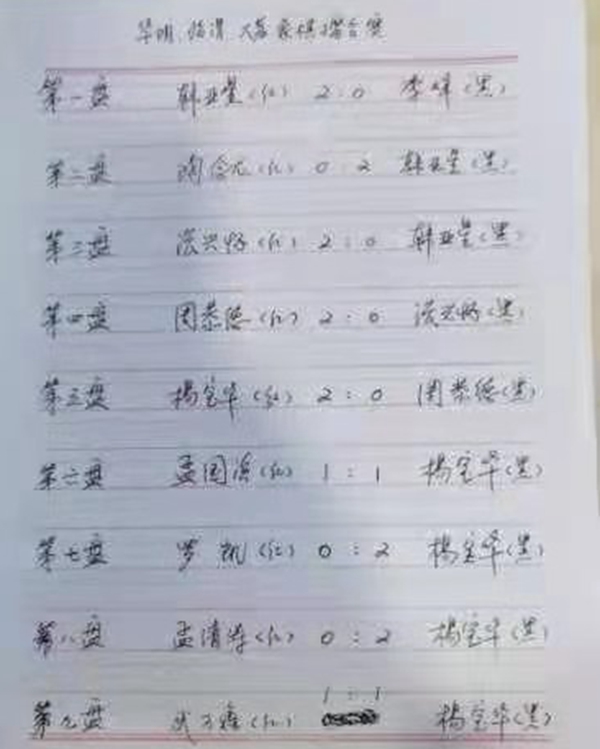 临渭 象棋擂台赛
第一盘 韩亚星(红) 2:0 李峰(黑)
第二盘 陶(红) 0:2 韩亚星(黑)
第三盘 兴好(红) 2:0 韩亚星(黑)
第四盘 周恭德(红) 2:0 兴好(黑)
第五盘 杨宝华(红) 2:0 周恭德(黑)
第六盘 孟国(红) 1:1 杨宝华(黑)
第七盘 罗凯(红) 0:2 杨宝华(黑)
第八盘 孟清(红) 0:2 杨宝华(黑)
第九盘 (红) 1:1 杨宝华(黑)